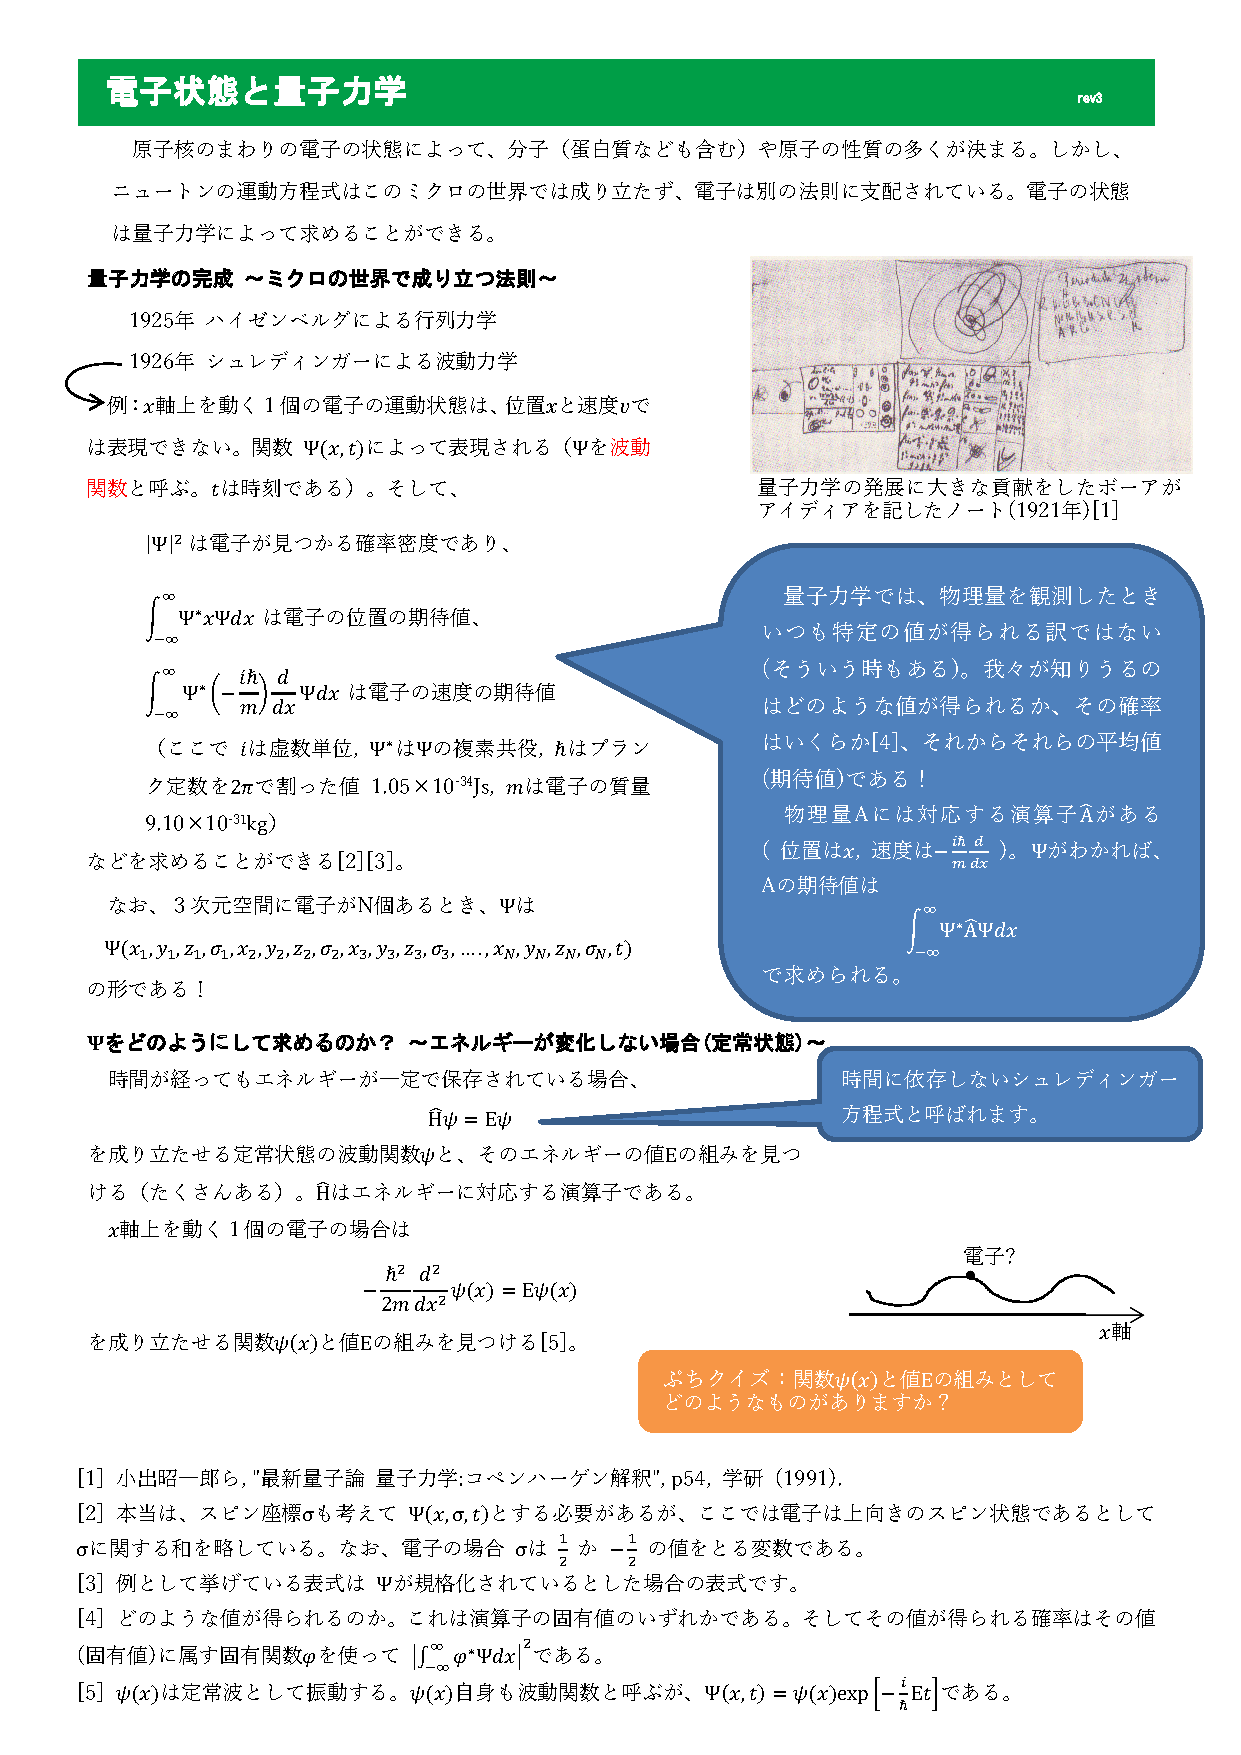 電子状態と量子力学
rev3
原子核のまわりの電子の状態によって、分子（蛋白質なども含む）や原子の性質の多くが決まる。しかし、
ニュートンの運動方程式はこのミクロの世界では成り立たず、電子は別の法則に支配されている。電子の状態
は量子力学によって求めることができる。
量子力学の完成 ～ミクロの世界で成り立つ法則～
1925年 ハイゼンベルグによる行列力学
1926年 シュレディンガーによる波動力学
例：𝑥軸上を動く１個の電子の運動状態は、位置𝑥と速度𝑣で
は表現できない。関数 Ψ(𝑥,𝑡)によって表現される（Ψを波動
関数と呼ぶ。𝑡は時刻である）。そして、
|Ψ|² は電子が見つかる確率密度であり、
∫_{−∞}^{∞} Ψ*𝑥Ψ𝑑𝑥 は電子の位置の期待値、
∫_{−∞}^{∞} Ψ*(−𝑖ℏ/𝑚) 𝑑/𝑑𝑥 Ψ𝑑𝑥 は電子の速度の期待値
（ここで 𝑖は虚数単位, Ψ*はΨの複素共役, ℏはプラン
ク定数を2𝜋で割った値 1.05×10⁻³⁴Js, 𝑚は電子の質量
9.10×10⁻³¹kg）
などを求めることができる[2][3]。
なお、３次元空間に電子がN個あるとき、Ψは
Ψ(𝑥₁,𝑦₁,𝑧₁,𝜎₁,𝑥₂,𝑦₂,𝑧₂,𝜎₂,𝑥₃,𝑦₃,𝑧₃,𝜎₃,….,𝑥_N,𝑦_N,𝑧_N,𝜎_N,𝑡)
の形である！
Periodic System
量子力学の発展に大きな貢献をしたボーアが
アイディアを記したノート(1921年)[1]
量子力学では、物理量を観測したとき
いつも特定の値が得られる訳ではない
(そういう時もある)。我々が知りうるの
はどのような値が得られるか、その確率
はいくらか[4]、それからそれらの平均値
(期待値)である！
物理量Aには対応する演算子Âがある
( 位置は𝑥, 速度は−𝑖ℏ/𝑚 𝑑/𝑑𝑥 )。Ψがわかれば、
Aの期待値は
∫_{−∞}^{∞} Ψ*ÂΨ𝑑𝑥
で求められる。
Ψをどのようにして求めるのか？ ～エネルギーが変化しない場合(定常状態)～
時間が経ってもエネルギーが一定で保存されている場合、
Ĥ𝜓 = E𝜓
時間に依存しないシュレディンガー
方程式と呼ばれます。
を成り立たせる定常状態の波動関数𝜓と、そのエネルギーの値Eの組みを見つ
ける（たくさんある）。Ĥはエネルギーに対応する演算子である。
𝑥軸上を動く１個の電子の場合は
−ℏ²/2𝑚 𝑑²/𝑑𝑥² 𝜓(𝑥) = E𝜓(𝑥)
を成り立たせる関数𝜓(𝑥)と値Eの組みを見つける[5]。
電子?
𝑥軸
ぷちクイズ：関数𝜓(𝑥)と値Eの組みとして
どのようなものがありますか？
[1] 小出昭一郎ら,"最新量子論 量子力学:コペンハーゲン解釈", p54, 学研 (1991).
[2] 本当は、スピン座標σも考えて Ψ(𝑥,σ,𝑡)とする必要があるが、ここでは電子は上向きのスピン状態であるとして
σに関する和を略している。なお、電子の場合 σは 1/2 か −1/2 の値をとる変数である。
[3] 例として挙げている表式は Ψが規格化されているとした場合の表式です。
[4] どのような値が得られるのか。これは演算子の固有値のいずれかである。そしてその値が得られる確率はその値
(固有値)に属す固有関数𝜑を使って |∫_{−∞}^{∞} 𝜑*Ψ𝑑𝑥|²である。
[5] 𝜓(𝑥)は定常波として振動する。𝜓(𝑥)自身も波動関数と呼ぶが、Ψ(𝑥,𝑡) = 𝜓(𝑥)exp[−𝑖/ℏ E𝑡]である。